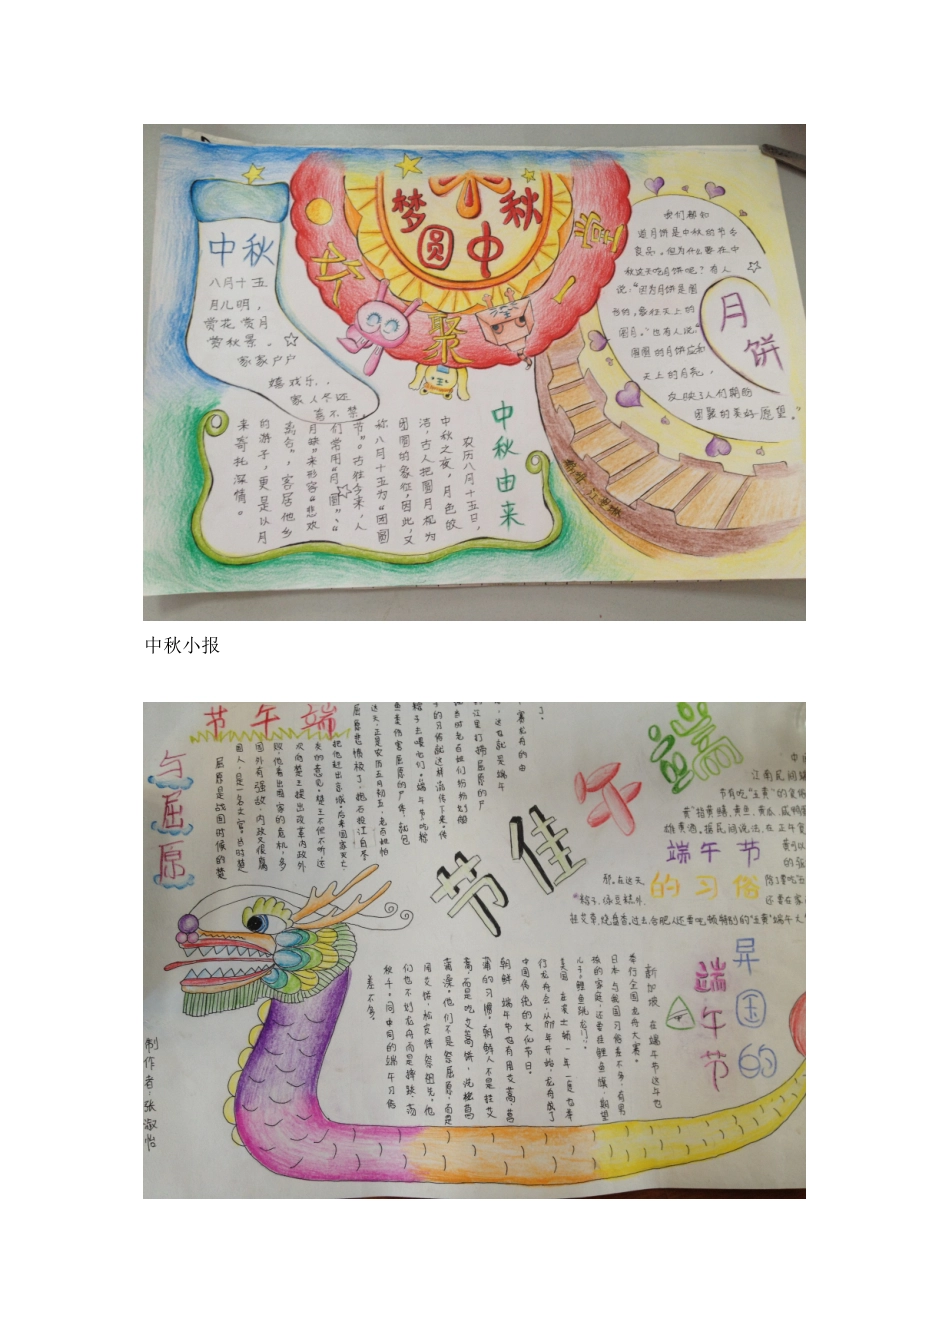 梦圆中秋
中秋
八月十五
月儿明，
赏花赏月
赏秋景。
家家户户
嬉戏乐，
家人不还
喜不禁
聚
中秋由来
农历八月十五日，
中秋之夜，月色皎
洁，古人把圆月视为
团圆的象征，因此，又
称八月十五为“团圆
节”。古往今来，人
们常用“月圆”、“
月缺”来形容“悲欢
离合”，客居他乡
的游子，更是以月
来寄托深情。
月饼
我们都知
道月饼是中秋的节令
食品。但为什么要在中
秋这天吃月饼呢？有人
说：“因为月饼是圆
形的，象征天上的
圆月。”也有人说“
圆圆的月饼应和
天上的月亮，
反映了人们期盼
团聚的美好愿望。”
中秋小报
端午节
与屈原
屈原是战国时候的楚
国人，是一名大官。当时楚
国外有强敌，内政又很腐
败，他看出国家的危机，多
次向楚王提出改革内政外
交的意见。楚王不但不听，还
把他赶出京城。后来国家灭亡，
屈原悲愤极了，抱石投江自杀。
这天，正是农历五月初五，老百姓怕
鱼虾伤害屈原的尸体，就包
粽子去喂它们。端午节吃粽
子的习俗就这样流传下来。传
说当时老百姓们纷纷划船
到江里打捞屈原的尸
端午佳节
端午节
的习俗
江南民间端
节有吃“五黄”的食俗
黄”指黄鳝、黄鱼、黄瓜、咸鸭蛋
雄黄酒。据民间说法，在正午食
挂艾草，烧盘香。过去，合肥人还要吃顿特别的“五黄”端午大
异国的
端午节
新加坡 在端午节这午也
举行全国龙舟大赛。
日本 与我国习俗差不多，有男
孩的家庭，还要挂鲤鱼旗，期望
儿子“鲤鱼跳龙门”。
美国 在波士顿一年一度也举
中国传统的大化节日。
朝鲜 端午节也有用艾蒿、菖
蒲的习惯。朝鲜人不是挂艾
蒿，而是吃艾蒿饼，洗菖蒲
菖蒲澡。他们不是祭屈原，而是
用艾饼，松皮饼祭祖先。他
们也不划龙舟而是摔跤，荡
秋千。同中国的端午习俗
差不多。
制作者：张淑怡